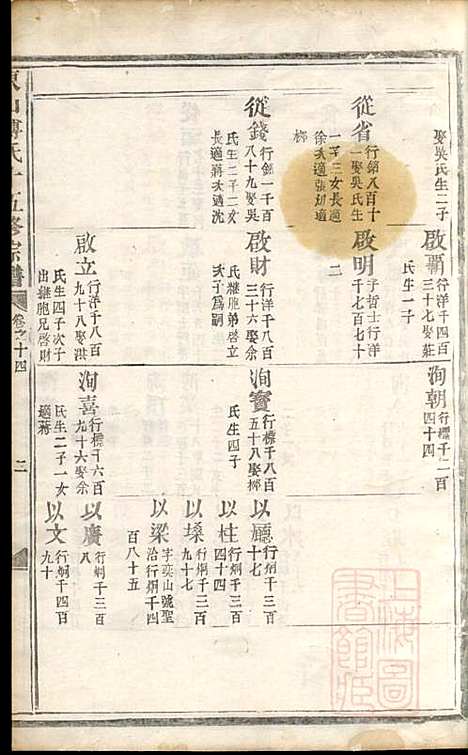 娶吳氏生二子
從省行銷八百十
一娶吳氏生
一子三女長適
徐次適張幼適
柳
從錢行銷一千百
八十九娶吳
氏生二子二女
長適蔣次適沈
啟霸行洋千四百
三十七娶莊
氏生一子
啟明字哲士行洋
千七百七十
二
啟財行洋千八百
三十六娶余
氏繼胞弟啓立
次子爲嗣
啟立行洋千八百
九十八娶洪
氏生四子次子
出繼胞兄啓財
洵朝行標千二百
四十四
洵寳行標千八百
五十八娶柳
氏生四子
洵喜行標千六百
九十六娶余
氏生二子一女
適蔣
以廳行烱千三百
十七
以柱行烱千三百
四十四
以㙙行烱千三百
七十
以梁字奕山號聖
治行烱千四
百八十五
以廣行烱千三百
八
以文行烱千四百
九十
東山傅氏十五修宗譜
卷之十四
二
上海圖書館藏